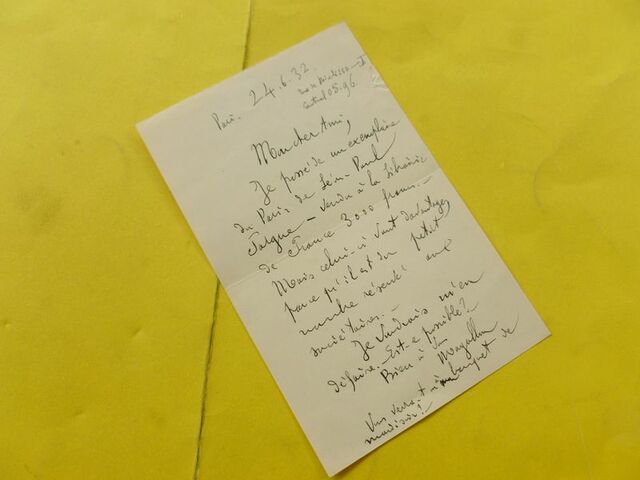 Paris. 24.6.32
Central 05.96
Mon cher Ami,
Je possède un exemplaire
du Paris de Léon-Paul
Fargue – vendu à la Librairie
de France 3000 francs. –
Mais celui-ci vaut davantage,
parce qu'il est du petit
nombre réservé aux
sociétaires. –
Je voudrais m'en
défaire. Est-ce possible?
Bien à vous
Magallon
Vous verra-t-on banquet de
mardi soir!